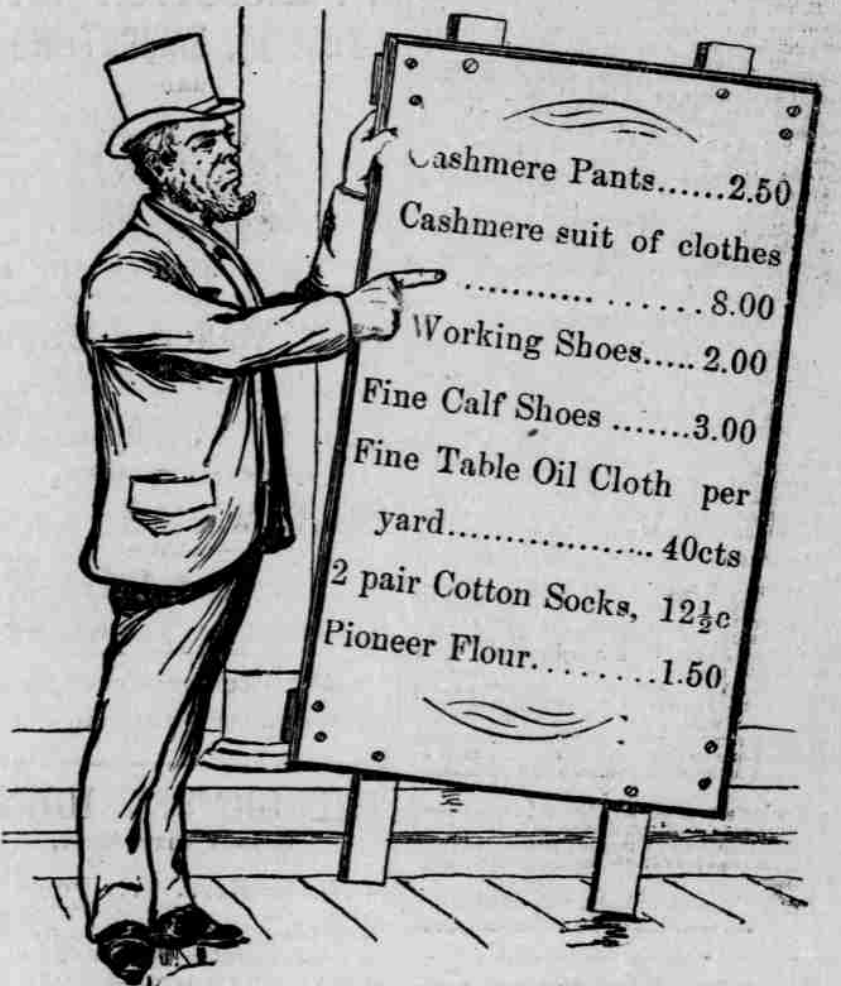 Cashmere Pants......2.50
Cashmere suit of clothes
............ ......8.00
Working Shoes.....2.00
Fine Calf Shoes .......3.00
Fine Table Oil Cloth per
yard.................. 40cts
2 pair Cotton Socks, 12½c
Pioneer Flour.........1.50